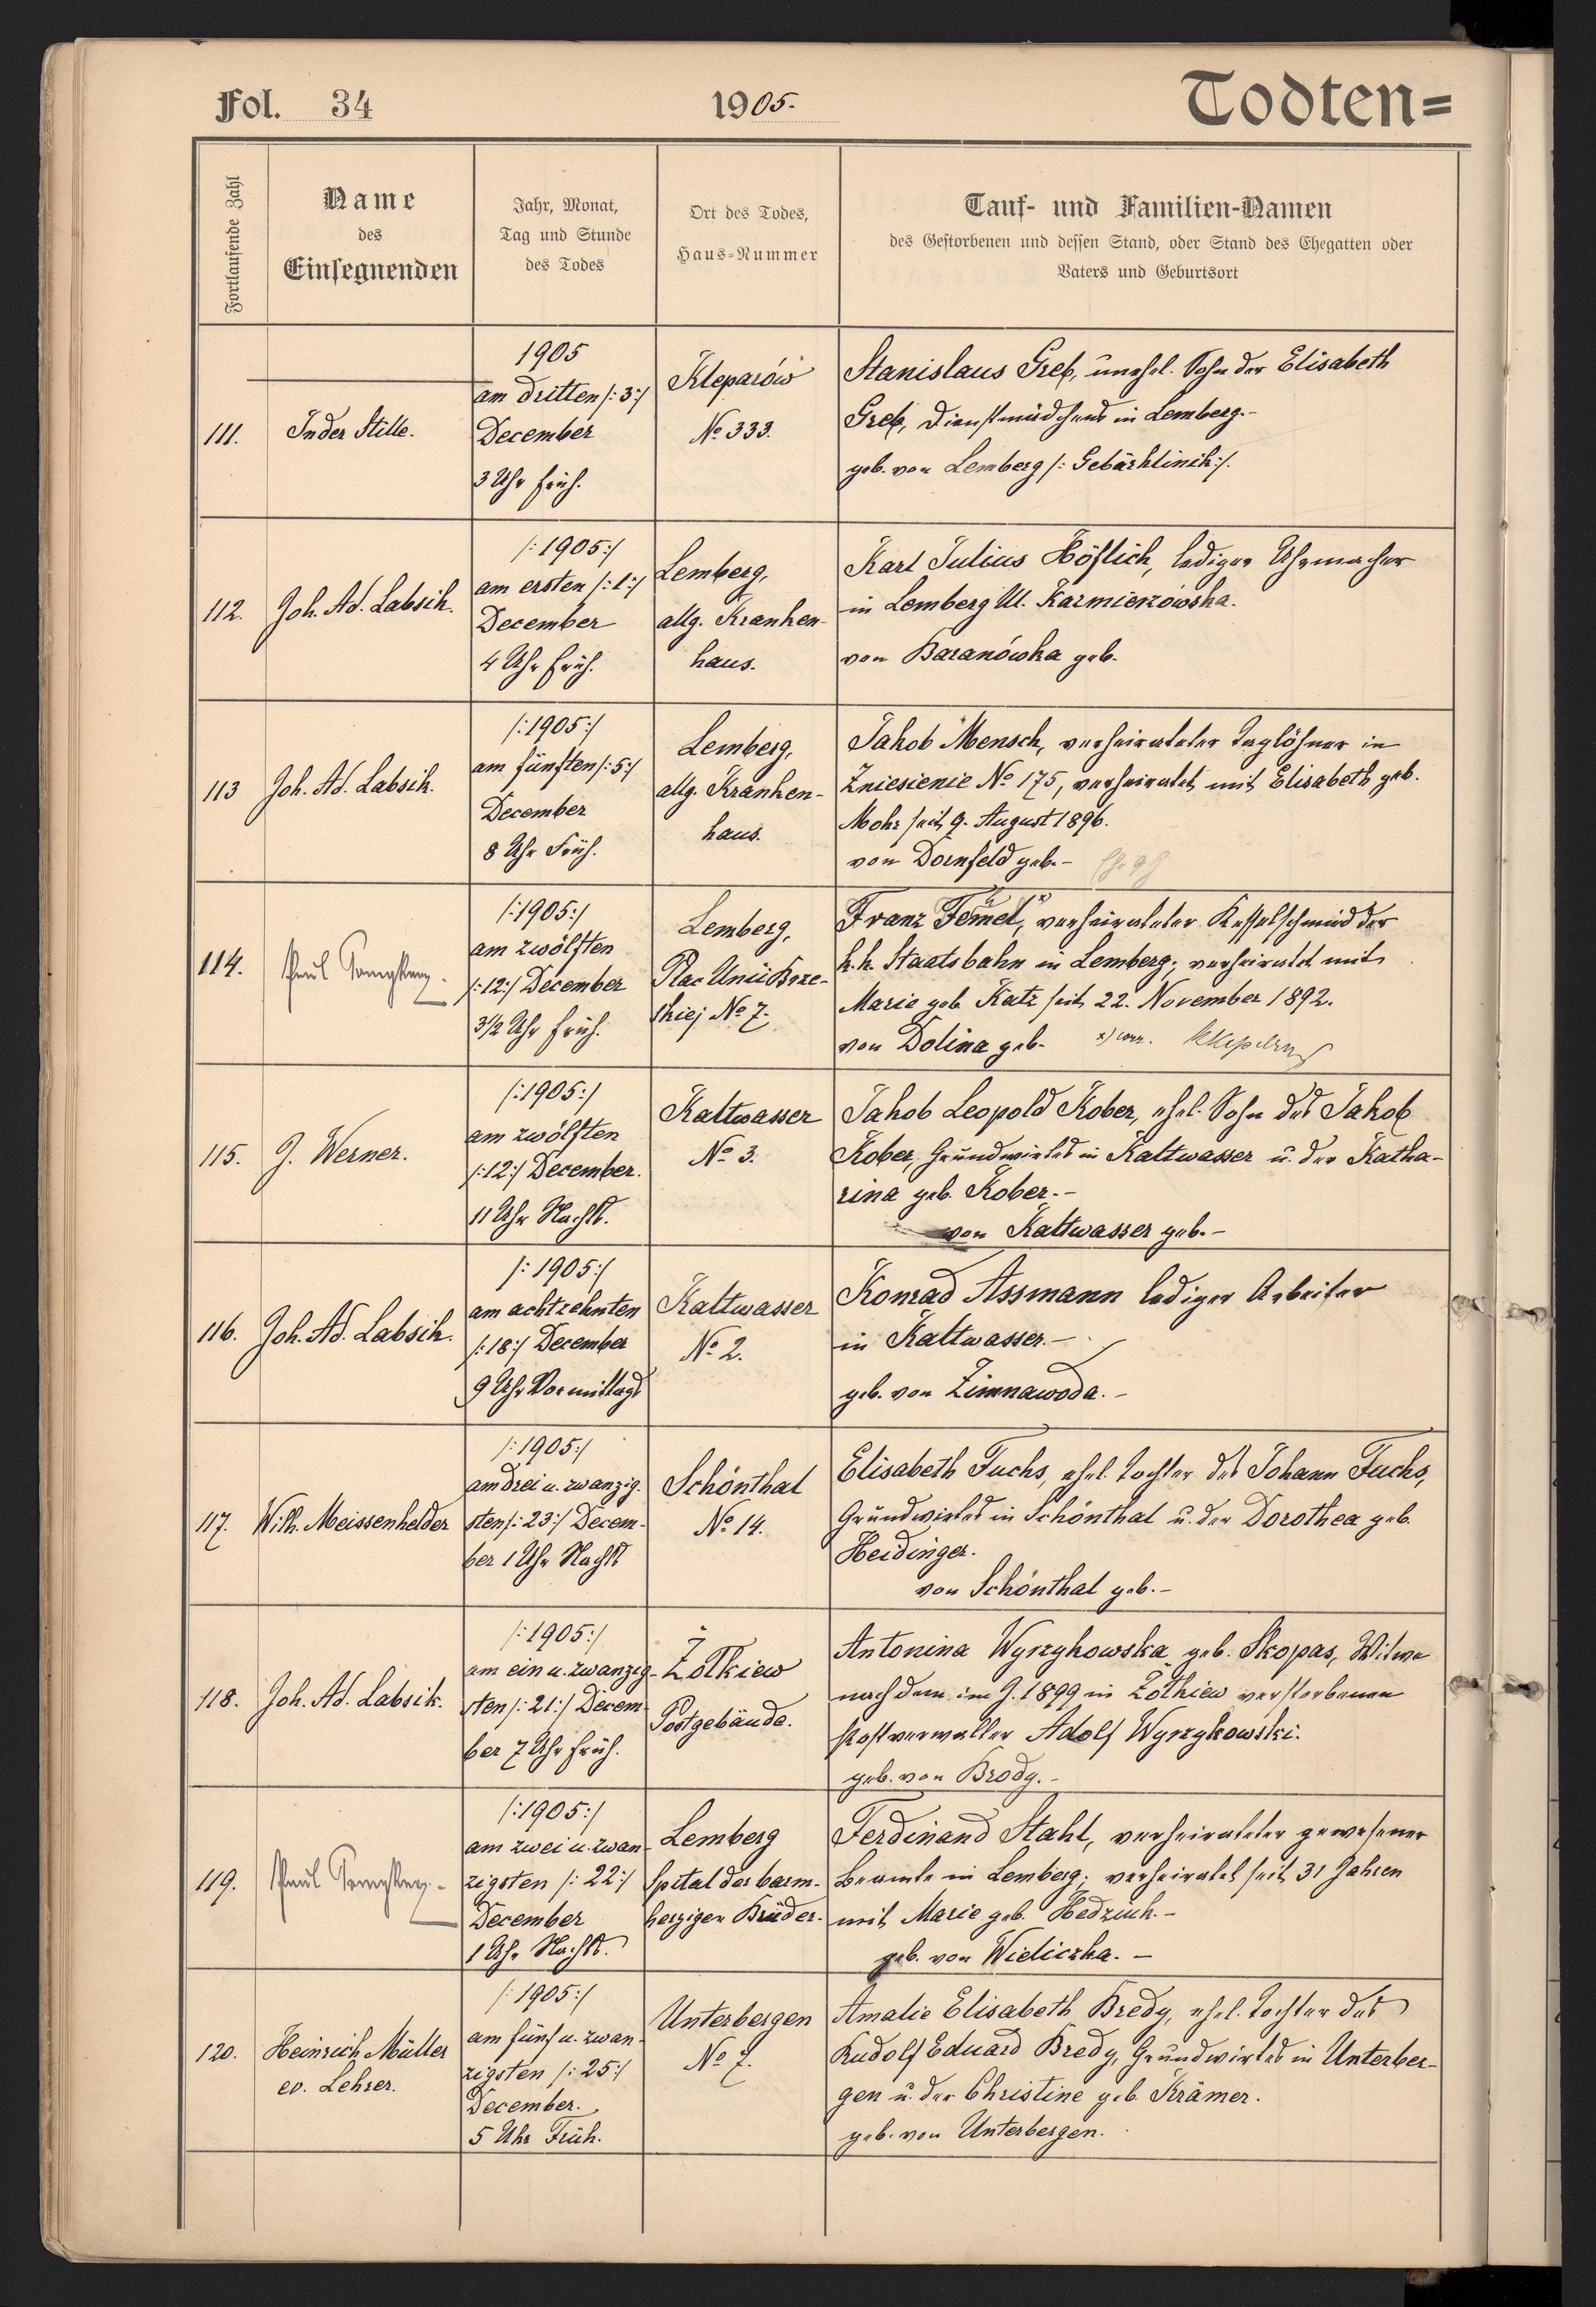 Fol. 34
1905.
Todten=
Fortlaufende Zahl
Name
des
Einsegnenden
Jahr, Monat,
Tag und Stunde
des Todes
Ort des Todes,
Haus-Nummer
Tauf- und Familien-Namen
des Gestorbenen und dessen Stand, oder Stand des Ehegatten oder
Vaters und Geburtsort
111.
In der Stille.
1905
am dritten /:3:/
December
3 Uhr früh.
Kleparów
No 333.
Stanislaus Greb, unehel. Sohn der Elisabeth
Greb, Dienstmädchens in Lemberg.-
geb. von Lemberg /: Gebärklinik:/.
112.
Joh. Ad. Labsik.
/:1905:/
am ersten /:1:/
December
4 Uhr früh.
Lemberg,
allg. Kranken-
haus.
Karl Julius Höflich, lediger Uhrmacher
in Lemberg Ul. Kazmierzówska.
von Baranówka geb.
113
Joh. Ad. Labsik.
/:1905:/
am fünften /:5:/
December
8 Uhr Früh.
Lemberg,
allg. Kranken-
haus.
Jakob Mensch, verheirateter Taglöhner in
Zniesienie No 175, verheiratet mit Elisabeth geb.
Mohr seit 9. August 1896.
von Dornfeld geb.-
114.
Paul
/:1905:/
am zwölften
/:12:/ December
3 1/2 Uhr früh.
Lemberg,
Plac Unii Brze-
skiej No 7.
Franz verheirateter Kesselschmied der
k. k. Staatsbahn in Lemberg; verheiratet mit
Marie geb. Katz seit 22. November 1892.
von Dolina geb. x) corr.
115.
J. Werner.
/:1905:/
am zwölften
/:12:/ December.
11 Uhr Nachts.
Kaltwasser
No 3.
Jakob Leopold Kober, ehel. Sohn des Jakob
Kober, Grundwirtes in Kaltwasser u. der Katha-
rina geb. Kober.-
von Kaltwasser geb.-
116.
Joh. Ad. Labsik.
/:1905:/
am achtzehnten
/:18:/ December
9 Uhr Vormittags
Kaltwasser
No 2.
Konrad Assmann lediger Arbeiter
in Kaltwasser.-
geb. von Zimnawoda.-
117.
Wilh. Meissenhelder
/:1905:/
am drei u. zwanzig-
sten /:23:/ Decem-
ber 1 Uhr Nachts
Schönthal
No 14.
Elisabeth Fuchs, ehel. Tochter des Johann Fuchs,
Grundwirtes in Schönthal u. der Dorothea geb.
Heidinger.
von Schönthal geb.-
118.
Joh. Ad. Labsik.
/:1905:/
am ein u. zwanzig-
sten /:21:/ Decem-
ber 7 Uhr früh.
Żolkiew
Postgebäude.
Antonina Wyrzykowska geb. Skopas, Witwe
nach dem im J. 1899 in Żolkiew verstorbenen
Postverwalter Adolf Wyrzykowski.
geb. von Brody.-
119.
Paul
/:1905:/
am zwei u. zwan-
zigsten /:22:/
December
1 Uhr Nachts.
Lemberg
Spital der barm-
herzigen Brüder.
Ferdinand Stahl, verheirateter gewesener
Beamte in Lemberg; verheiratet seit 31 Jahren
mit Marie geb. Hedziuk.-
geb. von Wieliczka.-
120.
Heinrich Müller
ev. Lehrer.
/:1905:/
am fünf u. zwan-
zigsten /:25:/
December.
5 Uhr Früh.
Unterbergen
No 7.
Amalie Elisabeth Bredy, ehel. Tochter des
Rudolf Eduard Bredy, Grundwirtes in Unterber-
gen u. der Christine geb. Krämer.
geb. von Unterbergen.